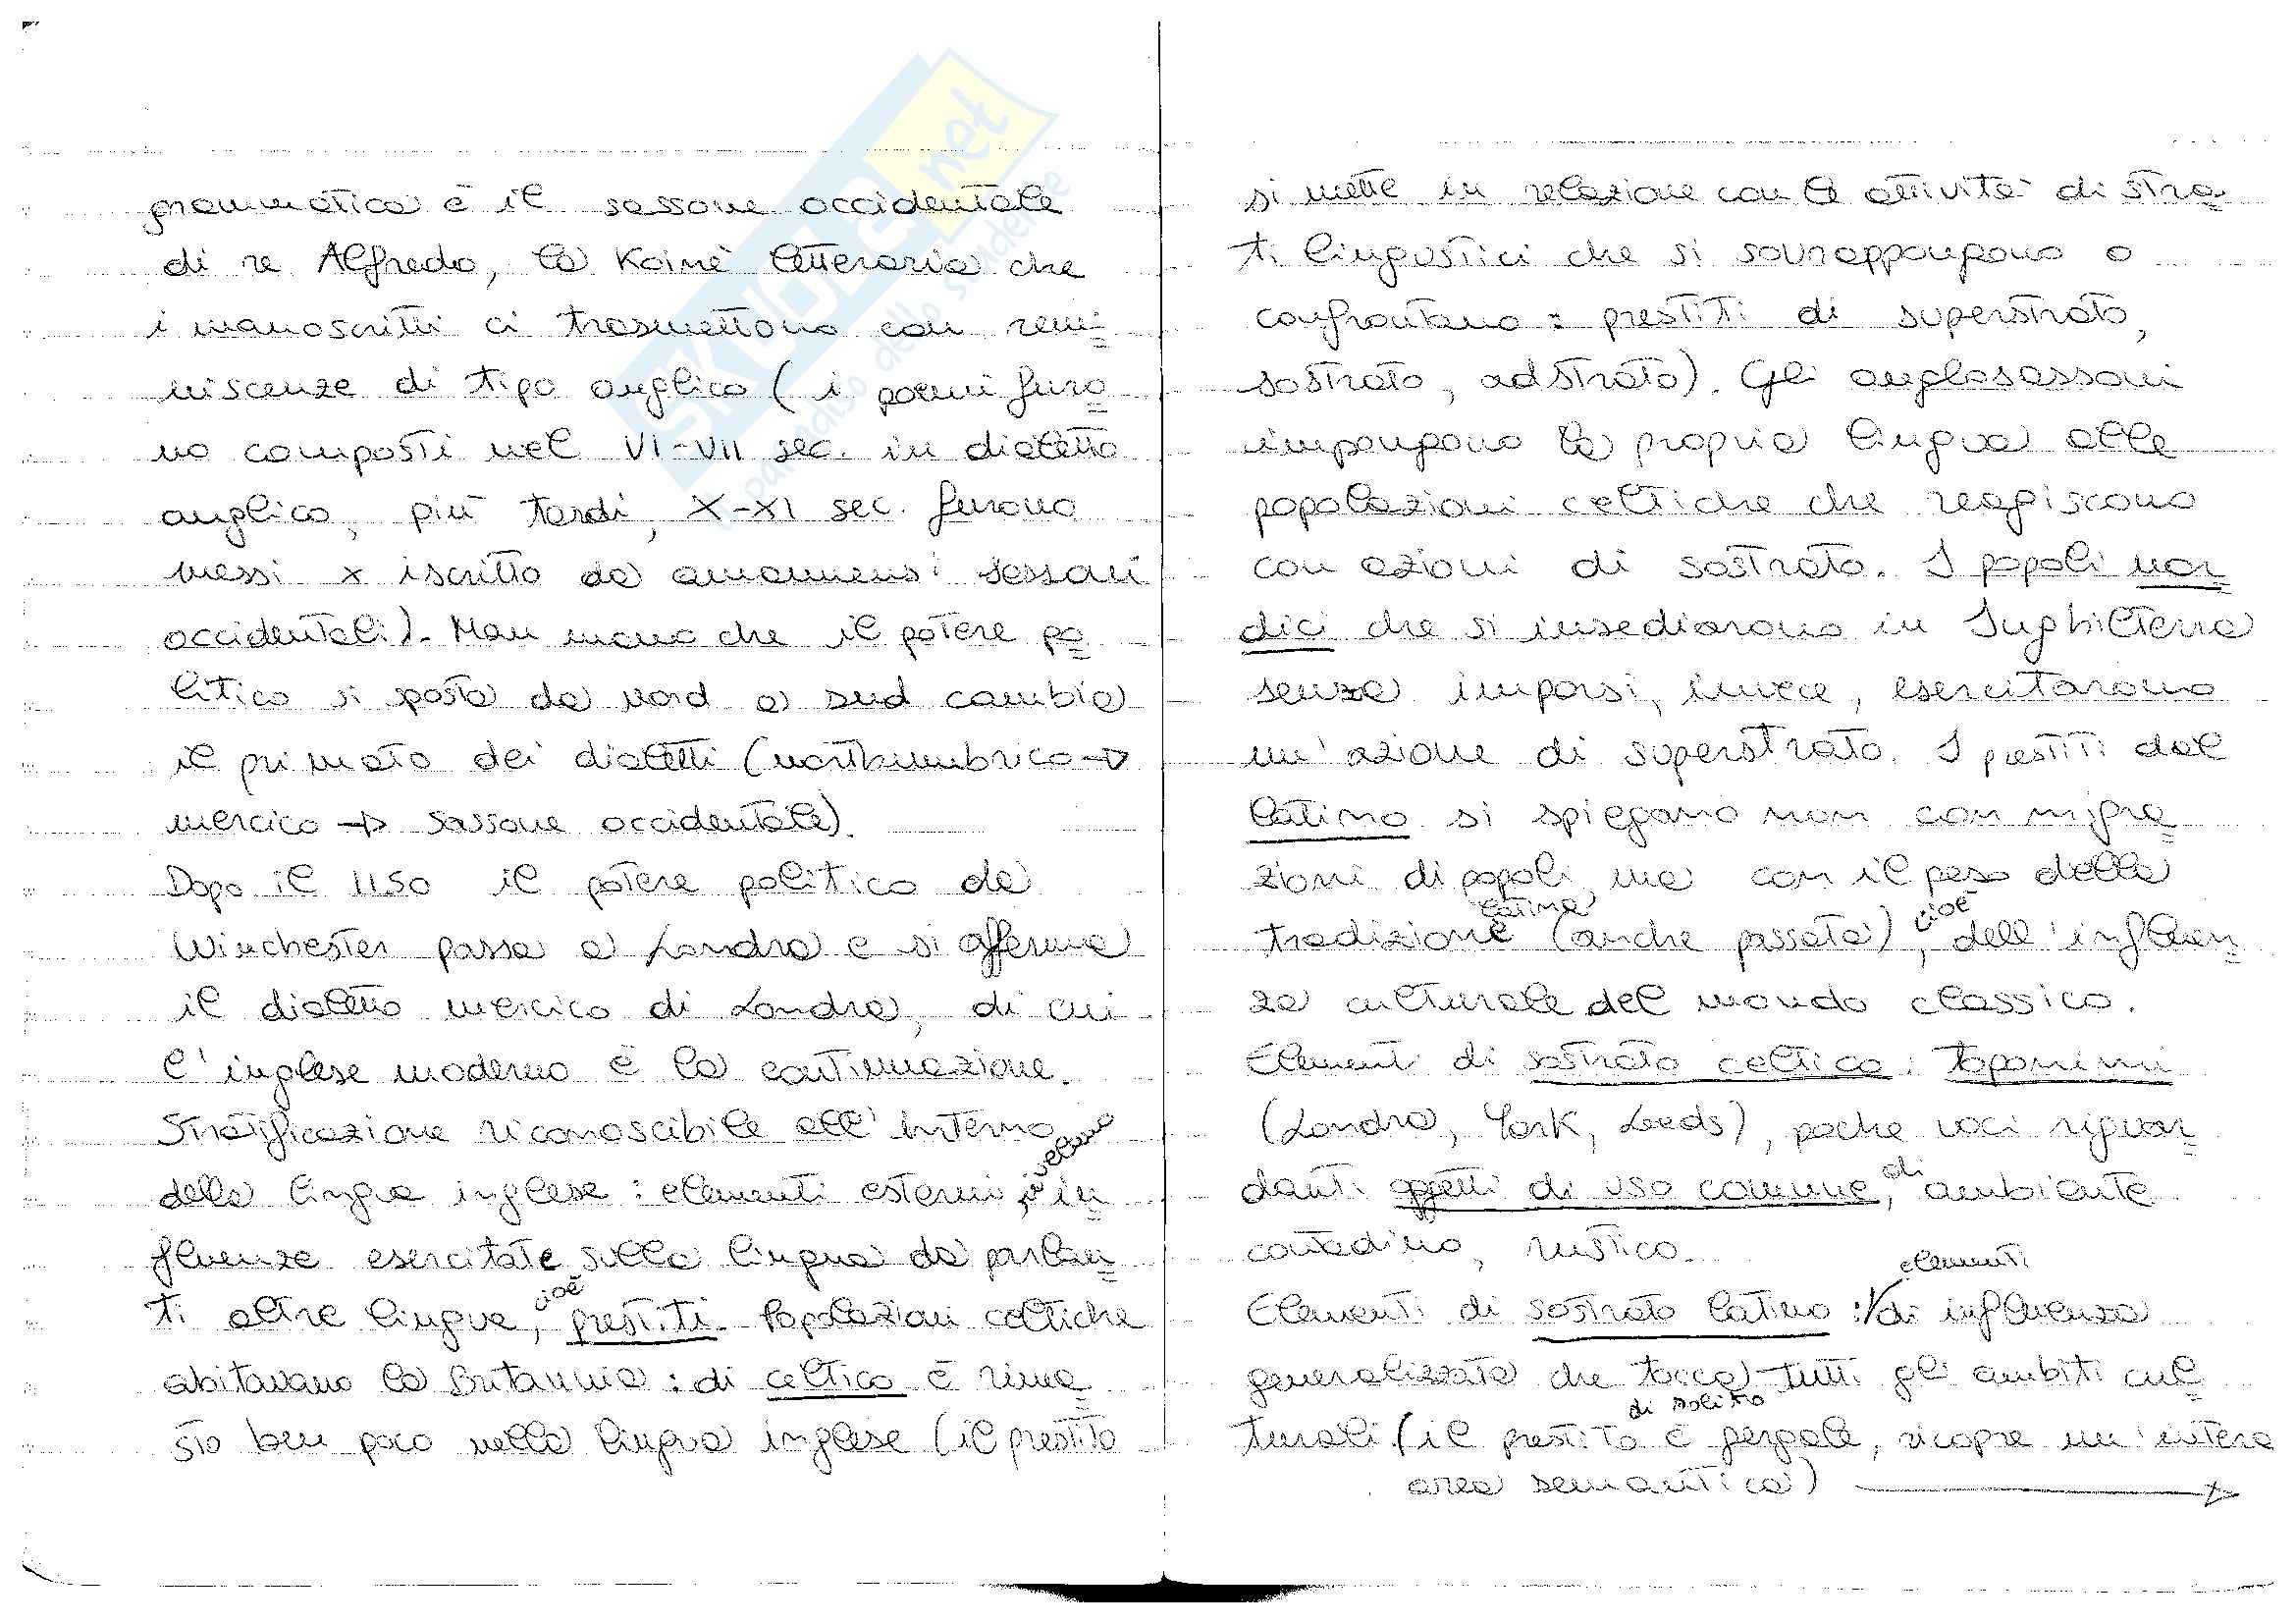 grammatica è il sassone occidentale
di re Alfredo, la Koinè letteraria che
i manoscritti ci trasmettono con remi=
niscenze di tipo anglico (i poemi furo=
no composti nel VI-VII sec. in dialetto
anglico, più tardi, X-XI sec. furono
messi x iscritto da amanuensi sassoni
occidentali). Man mano che il potere po=
litico si sposta da nord a sud cambia
il primato dei dialetti (northumbrico →
mercico → sassone occidentale).
Dopo il 1150 il potere politico da
Winchester passa a Londra e si afferma
il dialetto mercico di Londra, di cui
l'inglese moderno è la continuazione.
Stratificazione riconoscibile all'interno
della lingua inglese: elementi esterni, rivelano in=
fluenze esercitate sulla lingua da parlan=
ti altre lingue, cioè prestiti. Popolazioni celtiche
abitavano la Britannia: di celtico è rima=
sto ben poco nella lingua inglese (il prestito
si mette in relazione con le attività di stra=
ti linguistici che si sovrappongono o
confrontano: prestiti di superstrato,
sostrato, adstrato). Gli anglosassoni
impongono la propria lingua alle
popolazioni celtiche che reagiscono
con azioni di sostrato. I popoli nor=
dici che si insediarono in Inghilterra
senza imporsi, invece, esercitarono
un'azione di superstrato. I prestiti dal
latino si spiegano non con migra=
zioni di popoli, ma con il peso della
tradizione latina (anche passata), cioè dell'influen=
za culturale del mondo classico.
Elementi di sostrato celtico: toponimi
(Londra, York, Leeds), poche voci riguar=
danti oggetti di uso comune, di ambiente
contadino, rustico.
Elementi di sostrato latino: elementi di influenza
generalizzata che tocca tutti gli ambiti cul=
turali (il prestito di solito è gergale, ricopre un'intera
area semantica) →
SKUOLA.net
paradiso dello studente